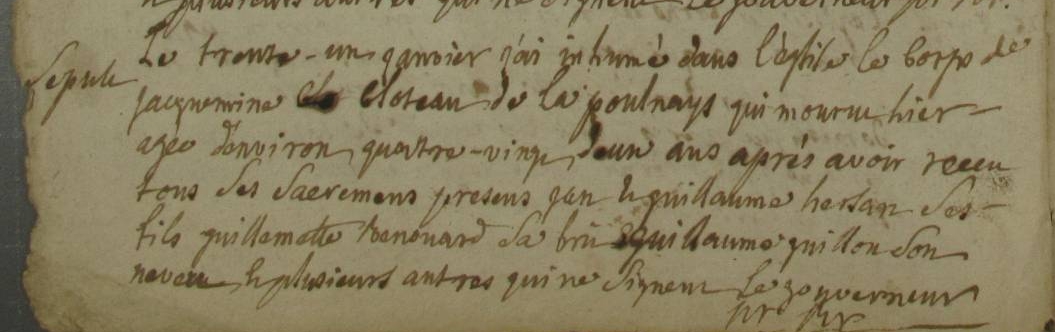 et plusieurs autres qui ne signent le gouverneur
Le trente-un janvier j'ai inhumé dans l'église le corps de
Sepult
jacquemine Cloteau de la poulnays qui mourut hier
agée d'environ quatre-vingt deux ans aprés avoir receu
tous ses sacremens presens jan & guillaume hersan ses
fils guillemette Renouard sa bru & guillaume guillon son
neveu & plusieurs autres qui ne signent Le gouverneur